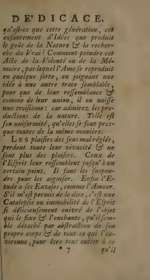 DEDICACE.
qu'offres que cette génération, cet
enfantement d'Idées que produit
le goût de la Nature & la recher-
che du Vrai! Comment peindre cet
Acte de la Volonté ou de la Mé-
moire, par lequel l'Ame se reproduit
en quelque sorte, en joignant une
idée à une autre trace semblable,
pour que de leur ressemblance &
comme de leur union, il en naisse
une troisième: car admirez les pro-
ductions de la nature. Telle est
son uniformité, qu'elles se font pres-
que toutes de la même manière.
Les plaisirs des sens mal réglés,
perdent toute leur vivacité & ne
sont plus des plaisirs. Ceux de
l'Esprit leur ressemblent jusqu'à un
certain point. Il faut les suspen-
dre pour les aiguiser. Enfin l'E-
tude a ses Extases, comme l'Amour.
S'il m'est permis de le dire, c'est une
Catalepsie ou immobilité de l'Esprit
si délicieusement enivré de l'objet
qui le fixe & l'enchante, qu'il sem-
ble détaché par abstraction de son
propre corps & de tout ce qui l'en-
vironne, pour être tout entier à ce
* 7
qu'il